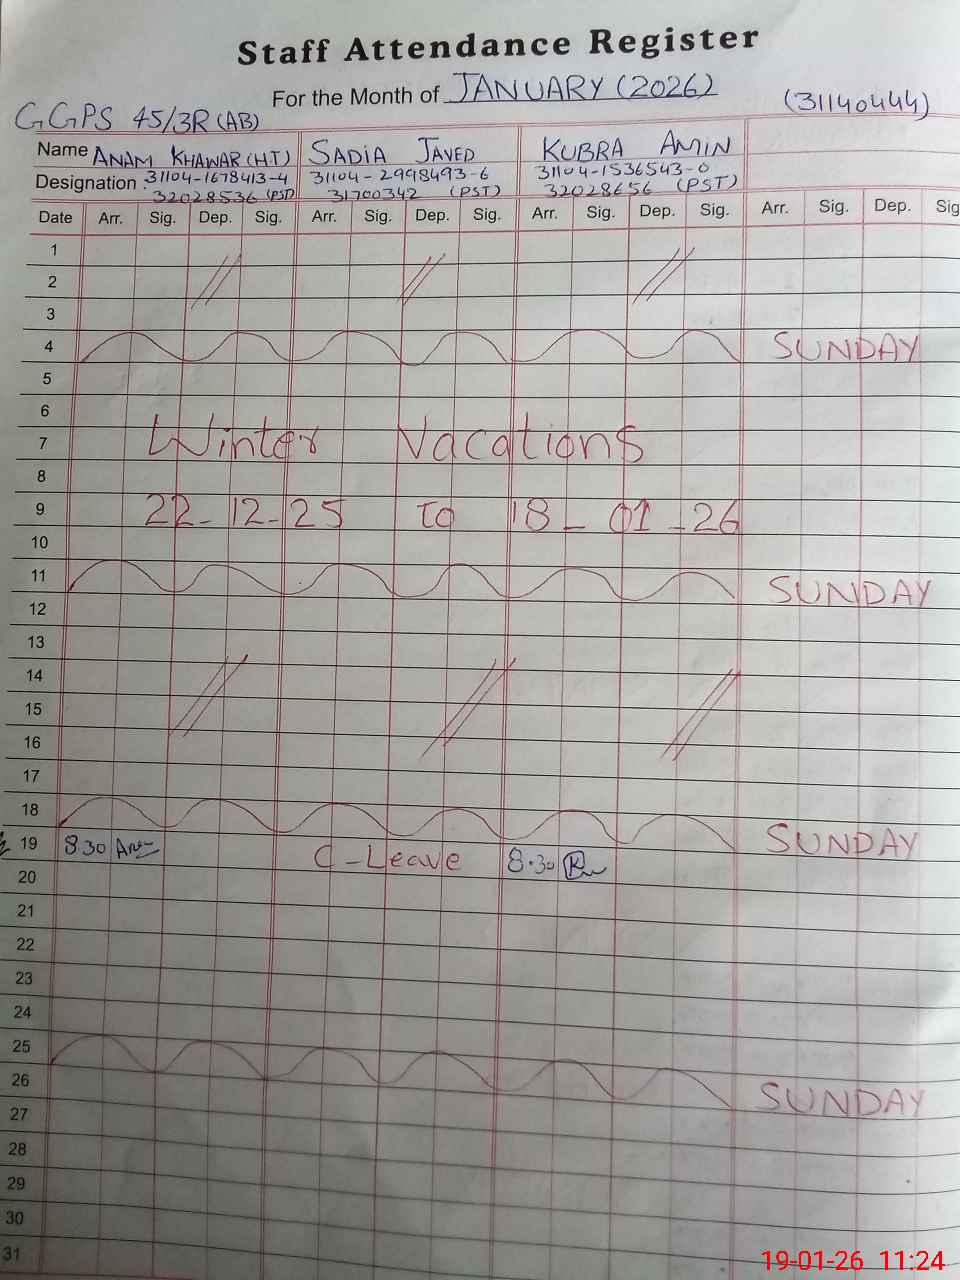 Staff Attendance Register
For the Month of JANUARY (2026)
(31140444)
GGPS 45/3R (AB)
Name ANAM KHAWAR (HT) SADIA JAVED KUBRA AMIN
Designation : 31104-1678413-4 31104-2998493-6 31104-1536543-0
32028536 (PST) 31700342 (PST) 32028656 (PST)
Date Arr. Sig. Dep. Sig. Arr. Sig. Dep. Sig. Arr. Sig. Dep. Sig. Arr. Sig. Dep. Sig
1
2
3
4 SUNDAY
5
6
7 Winter Vacations
8
9 22-12-25 to 18-01-26
10
11 SUNDAY
12
13
14
15
16
17
18 SUNDAY
19 8:30 C-Leave 8:30
20
21
22
23
24
25 SUNDAY
26
27
28
29
30
31
19-01-26 11:24